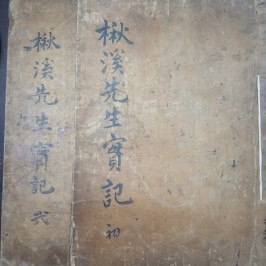 楸溪先生實記 初
楸溪先生實記 弐